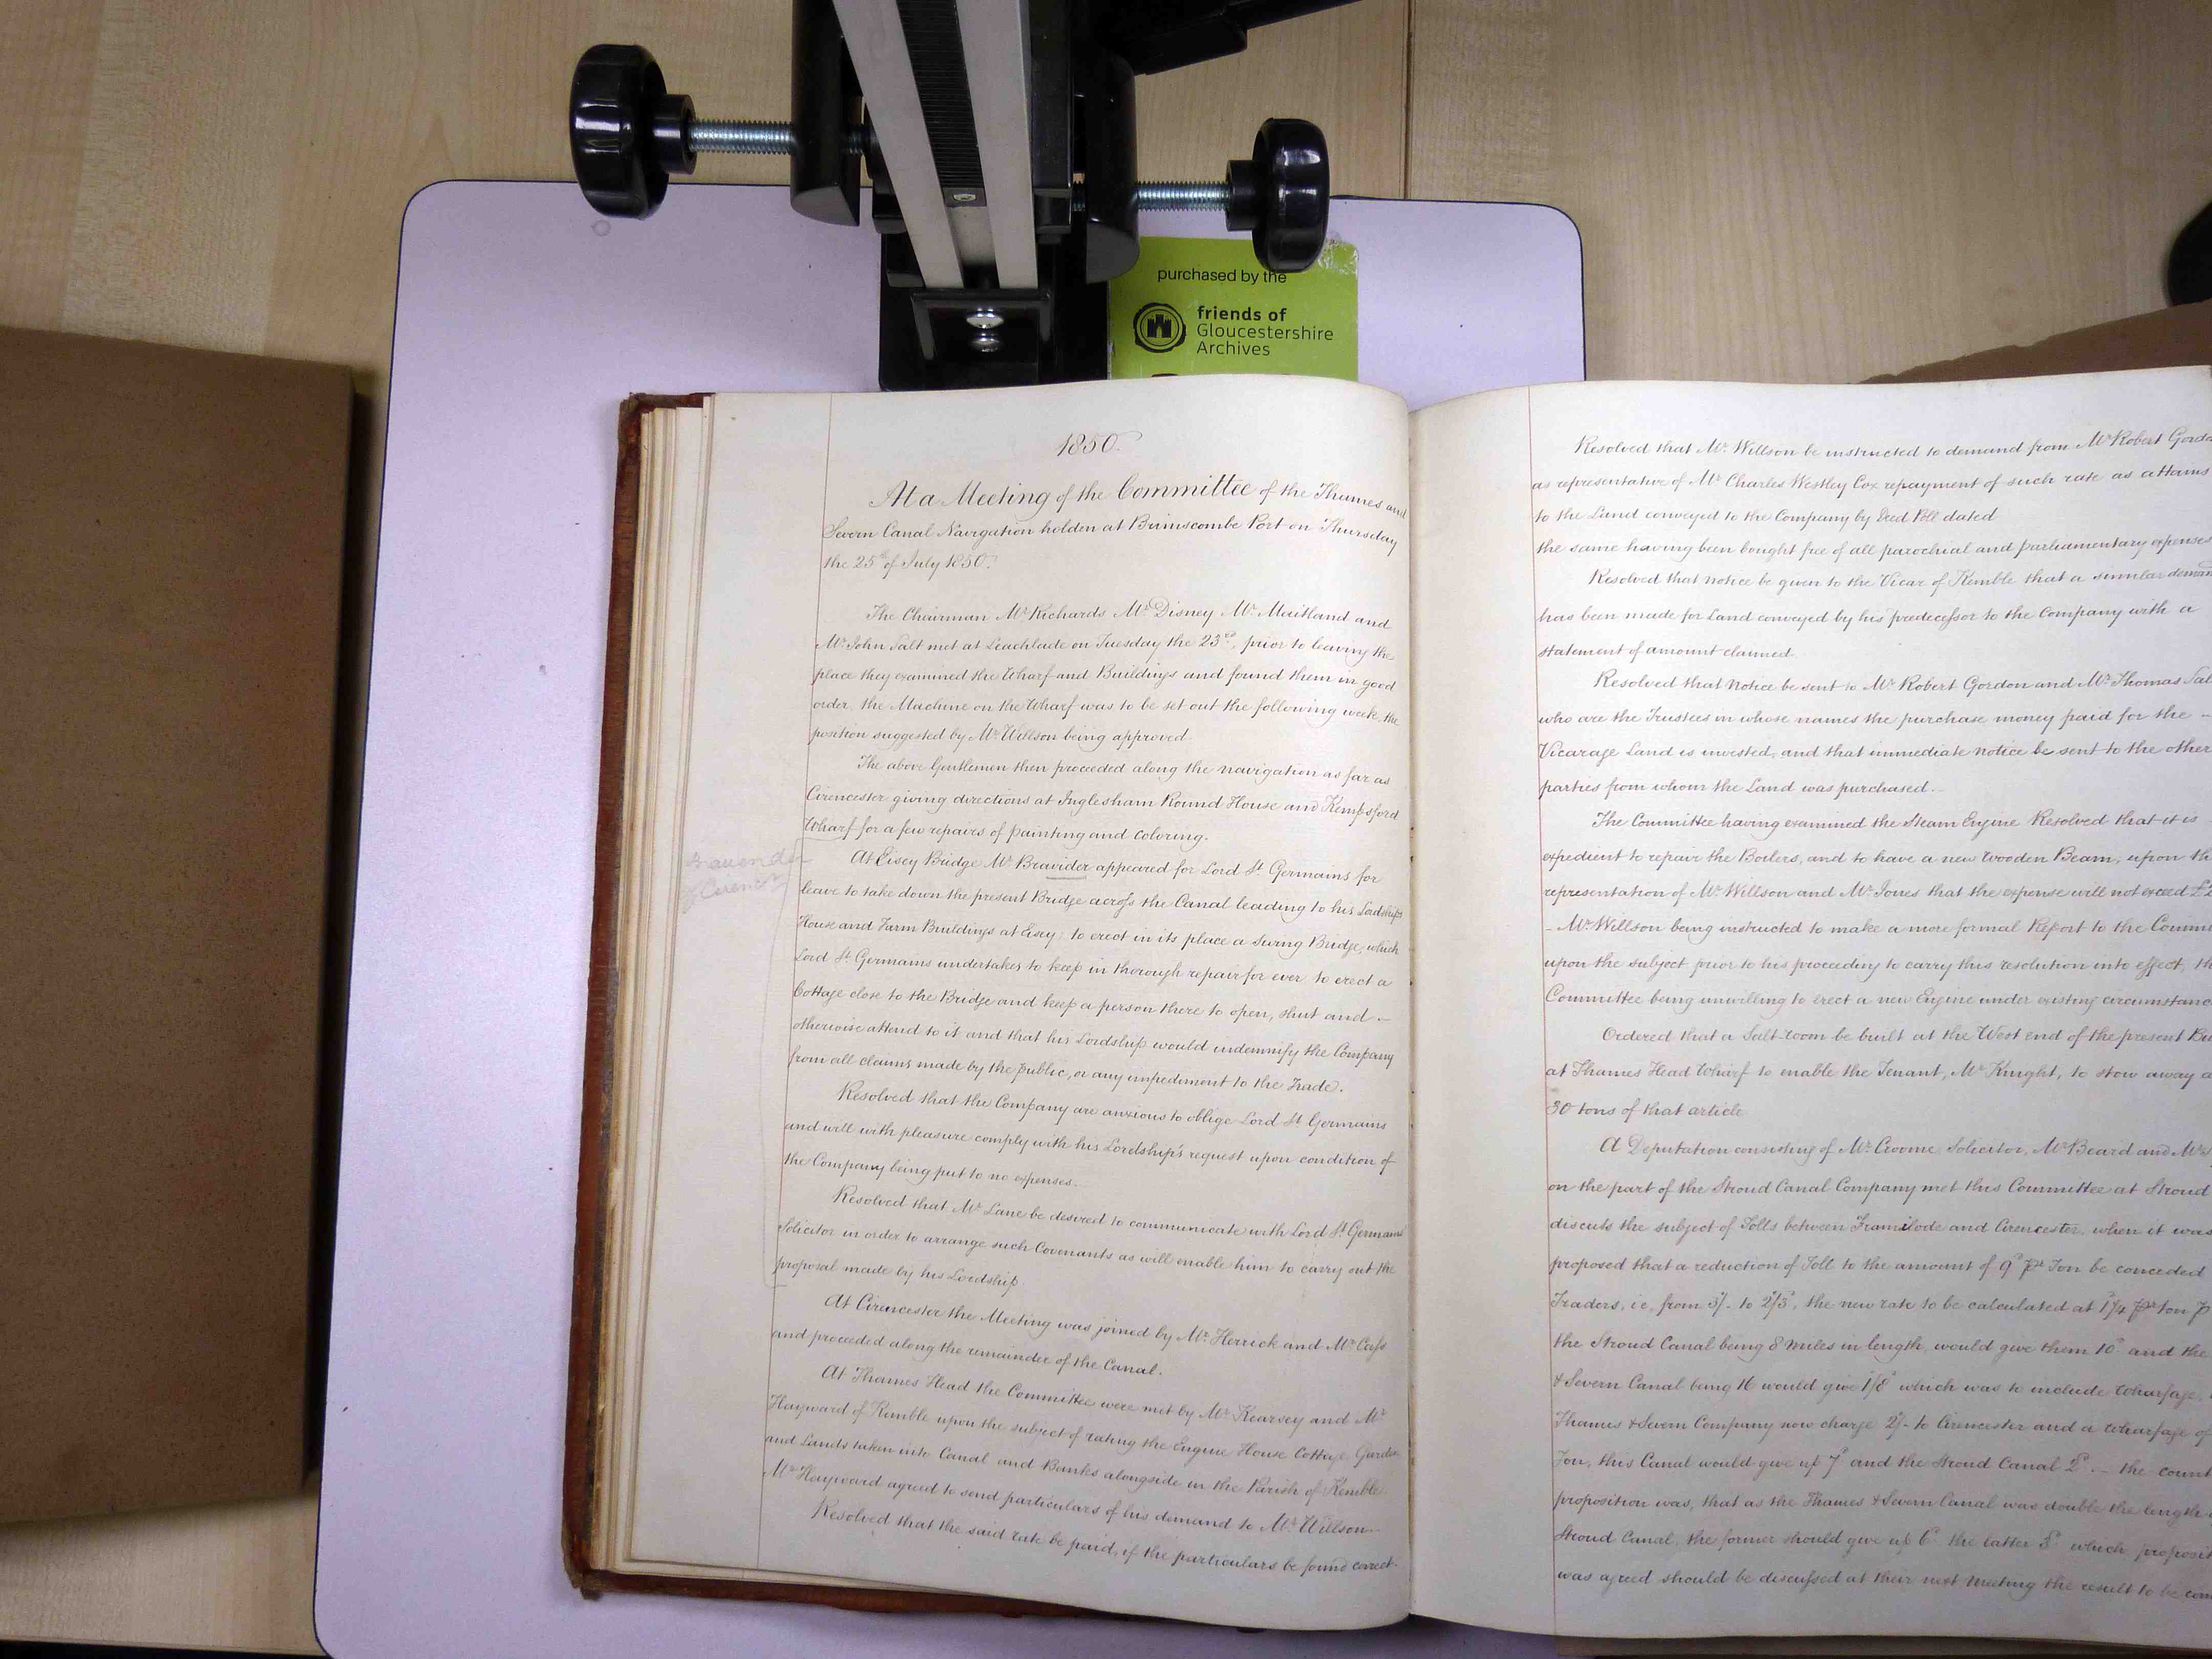 purchased by the
friends of
Gloucestershire
Archives
1850.
At a Meeting of the Committee of the Thames and
Severn Canal Navigation holden at Brimscombe Port on Thursday
the 25th of July 1850.
The Chairman Mr Richards Mr Disney Mr Maitland and
Mr John Salt met at Leachlade on Tuesday the 23rd, prior to leaving the
place they examined the Wharf and Buildings and found them in good
order, the Machine on the Wharf was to be set out the following week, the
position suggested by Mr Willson being approved
The above Gentlemen then proceeded along the navigation as far as
Cirencester giving directions at Inglesham Round House and Kempsford
Wharf for a few repairs of painting and coloring.
At Eisey Bridge Mr Bravider appeared for Lord St Germains for
leave to take down the present Bridge across the Canal leading to his Lordships
House and Farm Buildings at Eisey; to erect in its place a Swing Bridge, which
Lord St Germains undertakes to keep in thorough repair for ever to erect a
Cottage close to the Bridge and keep a person there to open, shut and -
otherwise attend to it and that his Lordship would indemnify the Company
from all claims made by the public, or any impediment to the Trade.
Resolved that the Company are anxious to oblige Lord St Germains
and will with pleasure comply with his Lordship's request upon condition of
the Company being put to no expenses.
Resolved that Mr Lane be desired to communicate with Lord St Germains
Solicitor in order to arrange such Covenants as will enable him to carry out the
proposal made by his Lordship.
At Cirencester the Meeting was joined by Mr Herrick and Mr Cass
and proceeded along the remainder of the Canal.
At Thames Head the Committee were met by Mr Kearsey and Mr
Hayward of Kemble upon the subject of rating the Engine House Cottage Garden
and Lands taken into Canal and Banks alongside in the Parish of Kemble
Mr Hayward agreed to send particulars of his demand to Mr Willson
Resolved that the said rate be paid, if the particulars be found correct.
Resolved that Mr Willson be instructed to demand from Mr Robert Gordon
as representative of Mr Charles Westley Cox repayment of such rate as attains
to the Land conveyed to the Company by Deed Poll dated
the same having been bought free of all parochial and parliamentary expenses
Resolved that notice be given to the Vicar of Kemble that a similar demand
has been made for Land conveyed by his predecessor to the Company with a
statement of amount claimed
Resolved that Notice be sent to Mr Robert Gordon and Mr Thomas
who are the Trustees in whose names the purchase money paid for the -
Vicarage Land is invested, and that immediate notice be sent to the other
parties from whom the Land was purchased.
The Committee having examined the Steam Engine Resolved that it is
expedient to repair the Boilers, and to have a new Wooden Beam, upon the
representation of Mr Willson and Mr Jones that the expense will not exceed
- Mr Willson being instructed to make a more formal Report to the
upon the subject prior to his proceeding to carry this resolution into effect, the
Committee being unwilling to erect a new Engine under existing circumstances
Ordered that a Salt-room be built at the West end of the present
at Thames Head Wharf to enable the Tenant, Mr Knight, to stow away
30 tons of that article
A Deputation consisting of Mr Croome, Solicitor, Mr Beard and
on the part of the Stroud Canal Company met this Committee at Stroud
discuss the subject of Tolls between Framilode and Cirencester, when it was
proposed that a reduction of Toll to the amount of 9d pr Ton be conceded
Traders, i.e. from 3/- to 2/3d, the new rate to be calculated at 1¼d pr ton
the Stroud Canal being 8 miles in length, would give them 10d and the
& Severn Canal being 16 would give 1/8d which was to include Wharfage.
Thames & Severn Company now charge 2/- to Cirencester and a wharfage of
Ton, this Canal would give up 7d and the Stroud Canal 2d. - the
proposition was, that as the Thames & Severn Canal was double the length
Stroud Canal, the former should give up 6d the latter 3d which
was agreed should be discussed at their next Meeting the result to be